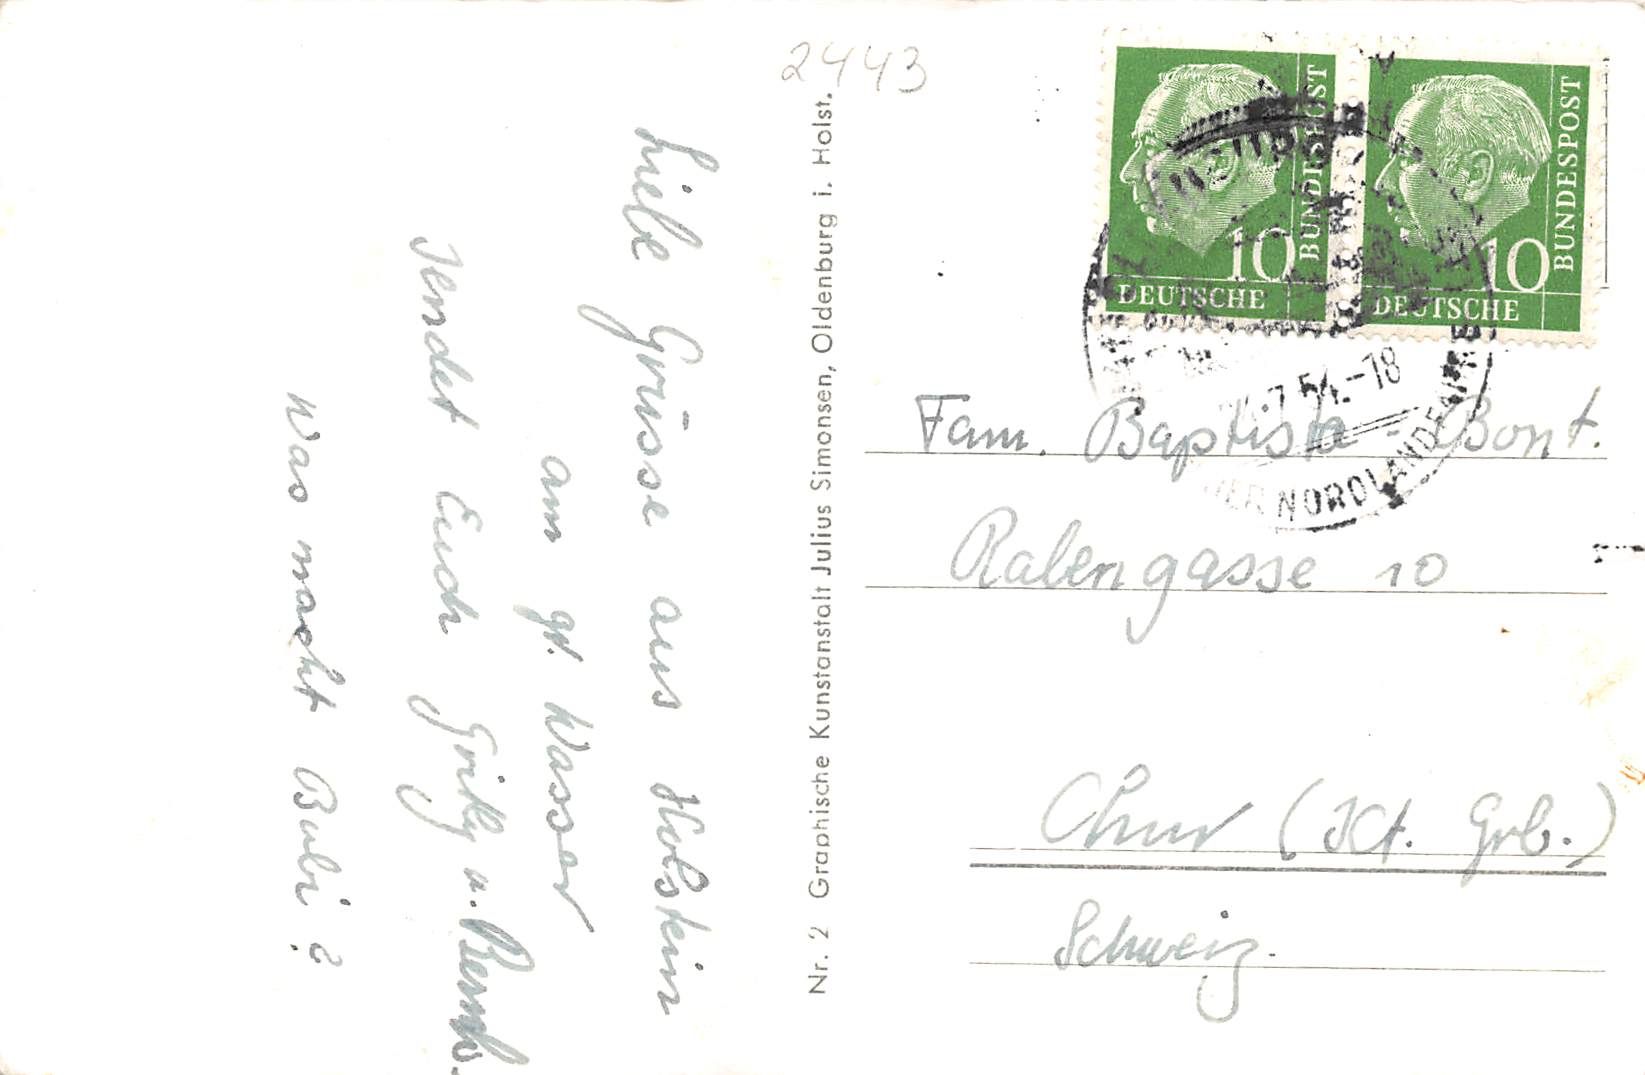 2443
Liebe Grüsse aus Holstein
am gr. Wasser
sendet Euch
Was macht Bubi?
Nr. 2 Graphische Kunstanstalt Julius Simonsen, Oldenburg i. Holst.
BUNDESPOST
10
DEUTSCHE
BUNDESPOST
10
DEUTSCHE
.7.54.-18
NORDLAND
Fam. Baptista - Bont.
Rabengasse 10
Chur (Kt. Grb.)
Schweiz.